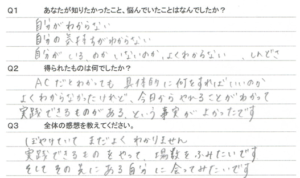 Q1 あなたが知りたかったこと、悩んでいたことはなんでしたか？
自分がわからない
自分の気持ちがわからない
自分がいるのかいないのか、よくわからない、しんどさ
Q2 得られたものは何でしたか？
ACだとわかっても具体的に何をすればいいのか
よくわからなかったけれど、今日からやることがわかって
実践できるものがある、という事実がよかったです
Q3 全体の感想を教えてください。
ぼんやりしていてまだよくわかりません
実践できるものをやって、場数をふみたいです
そしてその先にある自分に会ってみたいです